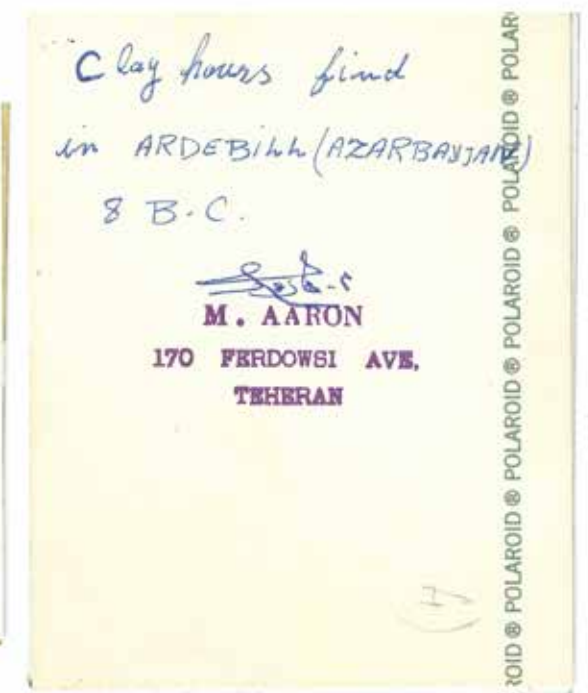 Clay hours find
in ARDEBILL (AZARBAYJANE)
8 B.C.
M. AARON
170 FERDOWSI AVE,
TEHERAN
ROID ® POLAROID ® POLAROID ® POLAROID ® POLAROID ® POLAR